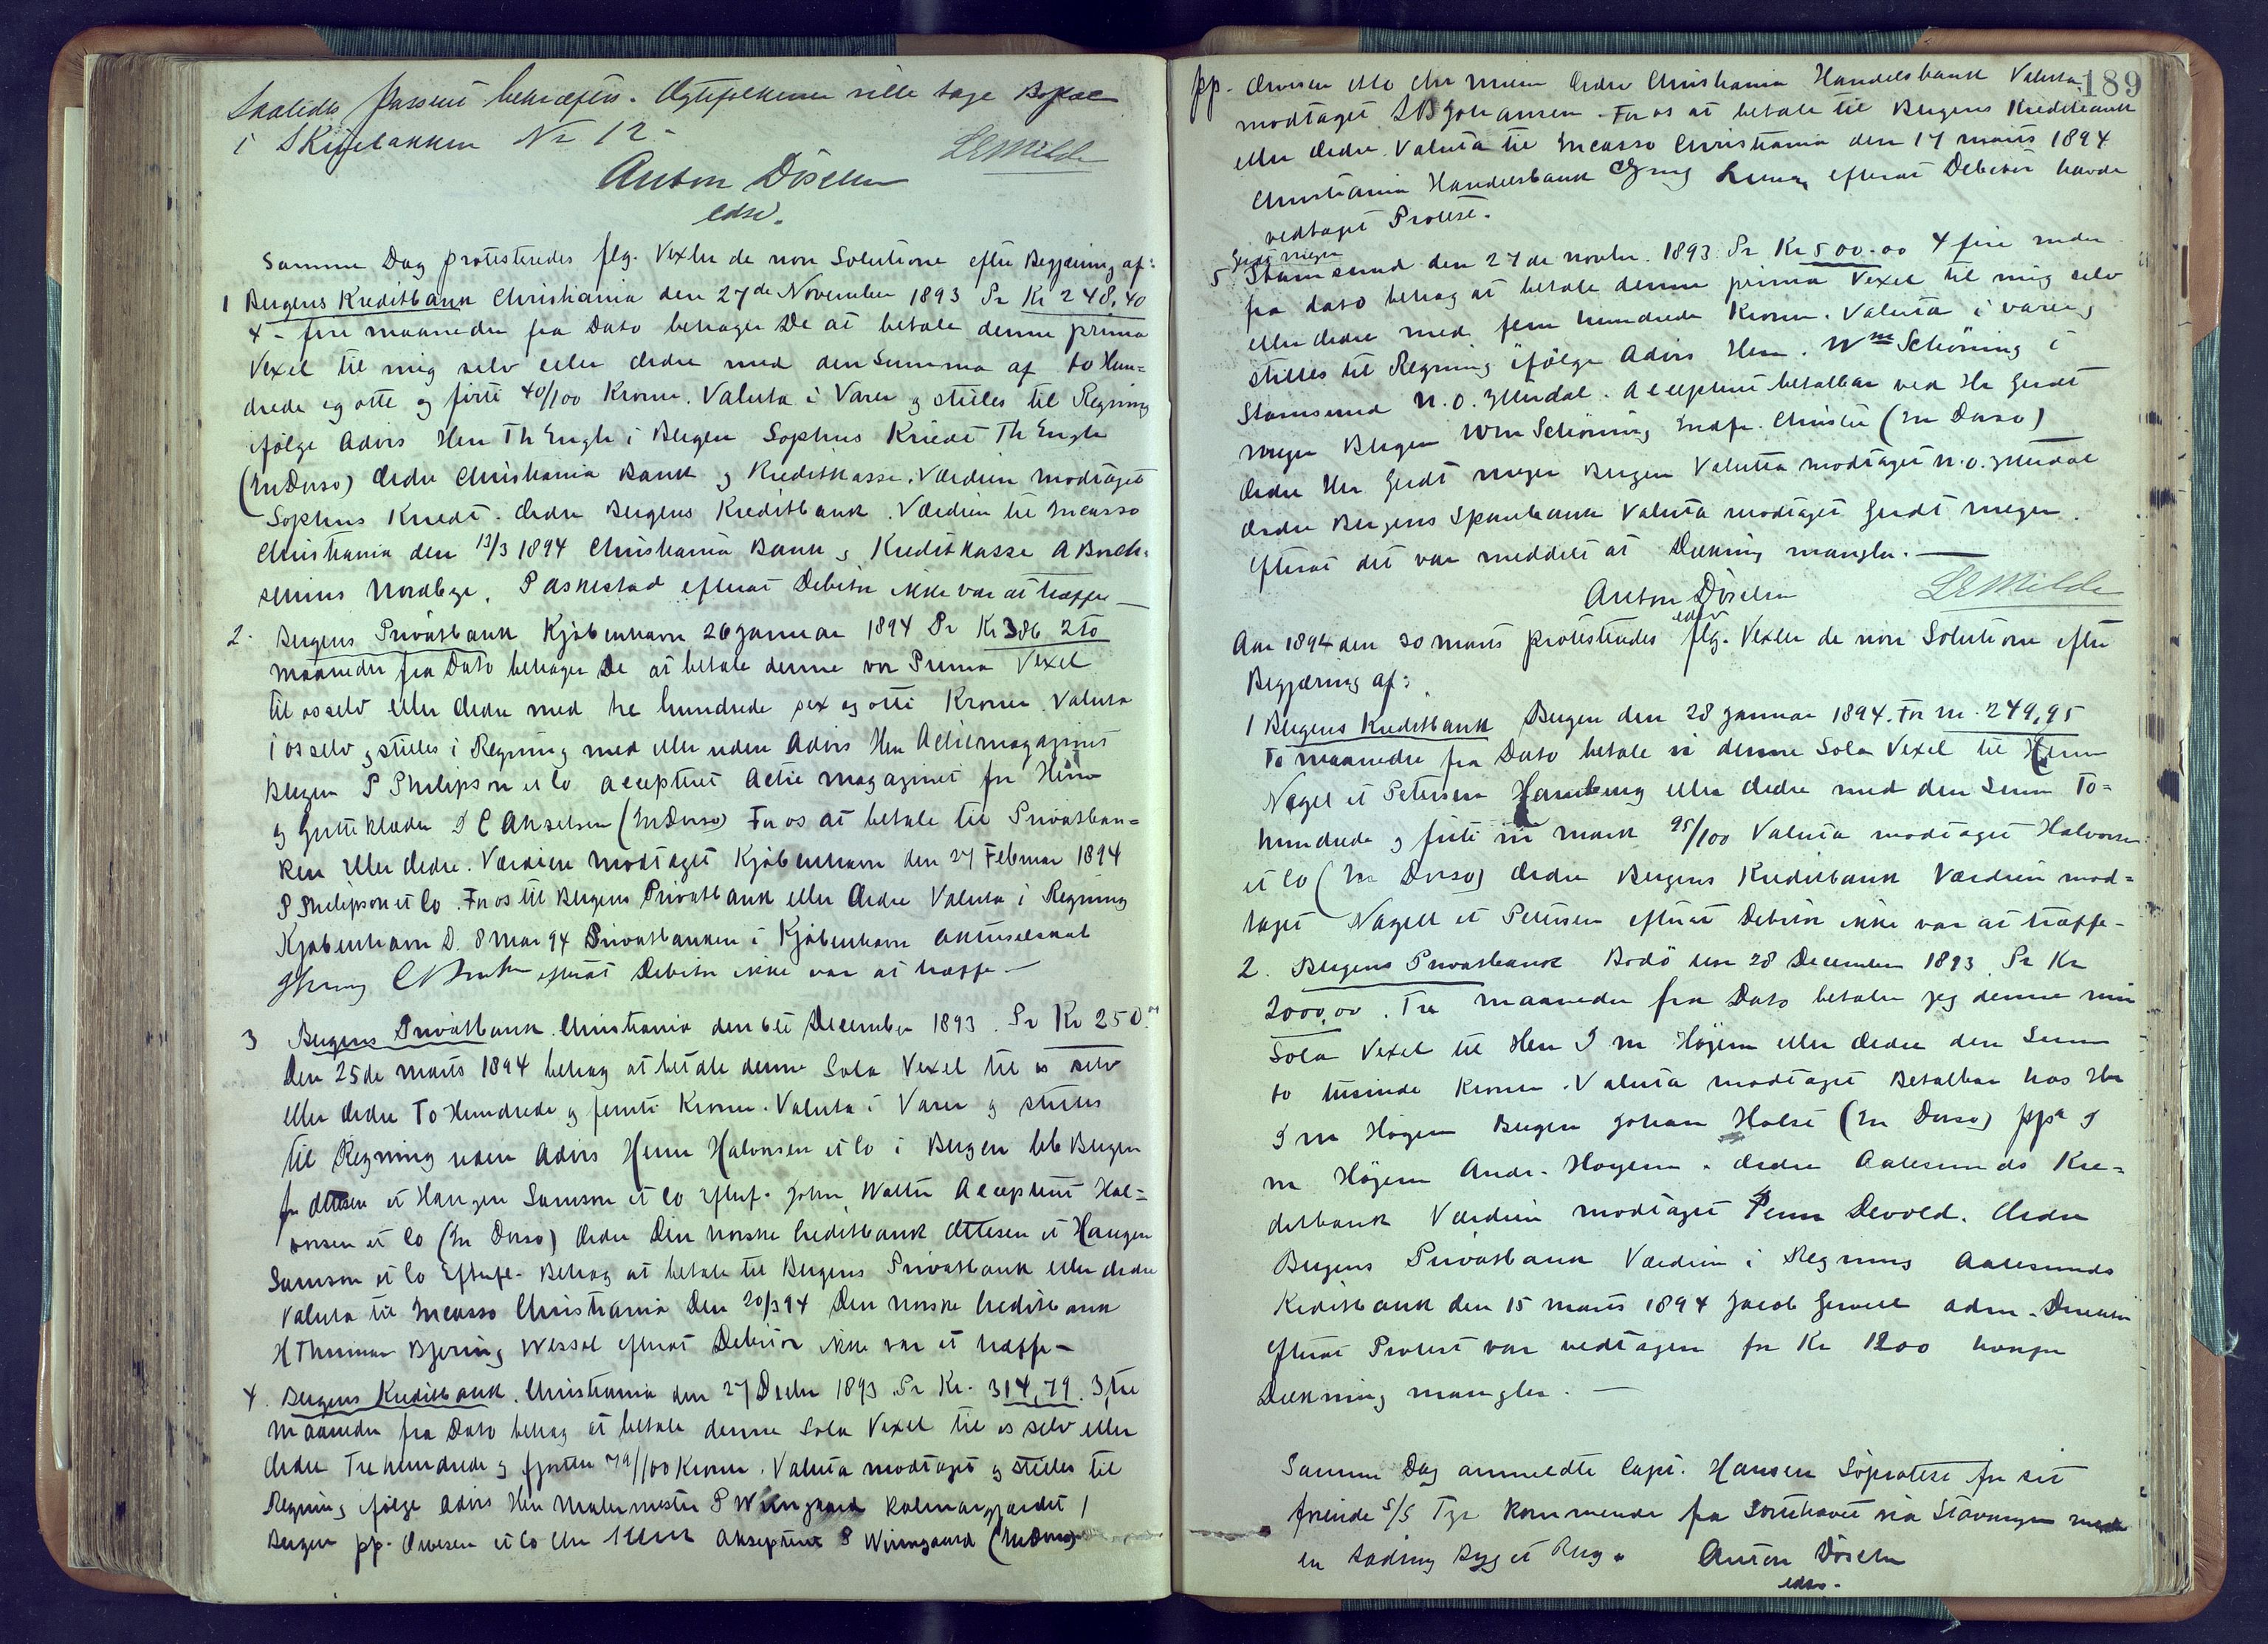 Saaledes passeret bekræftes. Ægtefolkene ville tage Bopæl
i Skivebakken No 12 -
LEMilde
Anton Döscher
edsv.
Samme Dag protesteredes flg. Vexler de non Solutione efter Begjæring af:
1 Bergens Kreditbank Christiania den 27de November 1893 Pr Kr 248,40
4 - fire maaneder fra Dato behager De at betale denne prima
Vexel til mig selv eller Ordre med den Summa af to Hun=
drede og otte og firti 40/100 Kroner. Valuta i Varer og stilles til Regning
ifølge Advis Herr Th Engh i Bergen Sophus Kriedt Th Engh
(In Dorso) Ordre Christiania Bank og Kreditkasse. Værdien modtaget
Sophus Kriedt. Ordre Bergens Kreditbank. Værdien til Incasso
Christiania den 13/3 1894 Christiania Bank og Kreditkasse A Borch=
senius Nordbye, P Askestad efterat Debitor ikke var at træffe —
2. Bergens Privatbank Kjöbenhavn 26 Januar 1894 Pr Kr 386 2 to
maaneder fra Dato behager De at betale denne vor Prima Vexel
til os selv eller Ordre med tre hundrede sex og otti Kroner Valuta
i os selv og stilles i Regning med eller uden Advis Herr Actiemagazinet
Bergen P Philipson et Co accepteret Actie magazinet for Herre
og Gutteklæder D C Akselsen (In Dorso) For os at betale til Privatban=
ken eller Ordre. Værdien modtaget Kjöbenhavn den 27 Februar 1894
P Philipson et Co. For os til Bergens Privatbank eller Ordre Valuta i Regning
Kjöbenhavn D. 8 Mar 94 Privatbanken i Kjöbenhavn Aktieselskab
efterat Debitor ikke var at træffe —
3 Bergens Privatbank. Christiania den 6te December 1893. Pr Kr 250.00
Den 25de Marts 1894 behag at betale denne Sola Vexel til os selv
eller Ordre To Hundrede og femti Kroner. Valuta i Varer og stilles
til Regning uden Advis Herrer Halvorsen et Co i Bergen
for Ottesen et Haugen Samson et Co Efterf. John Walter Accepteret Hal=
vorsen et Co (In Dorso) Ordre Den norske Creditbank Ottesen et Haugen
Samson et Co Efterf. Behag at betale til Bergens Privatbank eller Ordre
Valuta til Incasso Christiania Den 20/3 94 Den norske Creditbank
H Thomman Bjering Wessel efterat Debitor ikke var at træffe —
4. Bergens Kreditbank. Christiania den 27 Decbr 1893 Pr Kr. 314,79. 3, tre
maaneder fra Dato behag at betale denne Sola Vexel til os selv eller
Ordre Tre hundrede og fjorten 79/100 Kroner. Valuta modtaget og stilles til
Regning ifølge Advis Herr Malermester P Wiingaard Kalmargjærdet /
Bergen pp. Orvesen et Co Chr Akcepteret P Wiingaard (In Dorso)
189
pp. Orvesen et Co Chr Ordre Christiania Handelsbank Valuta
modtaget. Johansen. For os at betale til Bergens Kreditbank
eller Ordre. Valuta til Incasso Christiania den 17 marts 1894
Christiania Handelsbank efterat Debitor havde
vedtaget Protest.
Gerdt meyer
5 Stamsund den 27de Novbr. 1893. Pr Kr 500.00 4 fire mdr
fra dato behag at betale denne prima Vexel til mig selv
eller Ordre med fem hundrede Kroner. Valuta i varer og
stilles til Regning ifölge Advis Herr. Wm Schöning i
Stamsund N. O. Yttredal. Accepteret betalbar ved Hr Gerdt
meyer Bergen Wm Schöning (In Dorso)
Ordre Herr Gerdt meyer Bergen Valuta modtaget N. O. Yttredal
Ordre Bergens Sparebank Valuta modtaget Gerdt meyer.
efterat det var meddelt at Dækning mangler. —
Anton Döscher LEMilde
edsv
Aar 1894 den 30 marts protesteredes flg. Vexler de non Solutione efter
Begjæring af:
1 Bergens Kreditbank Bergen den 28 Januar 1894. For M. 249,95
To maaneder fra Dato betale vi denne Sola Vexel til Herrer
Nagel et Petersen Hamburg eller Ordre med den Sum To=
hundrede og firti ni Mark 95/100 Valuta modtaget Halvorsen
et Co (In Dorso) Ordre Bergens Kreditbank Værdien mod=
taget Nagell et Petersen efterat Debitor ikke var at træffe -
2. Bergens Privatbank Bodö den 28 December 1893. Pr Kr
2000,00. Tre maaneder fra Dato betaler jeg denne min
Sola Vexel til Herr I M Höyem eller Ordre den Sum
to tusinde Kroner. Valuta modtaget Betalbar hos Hr
I M Höyem Bergen Johan Holst (In Dorso) ppa I
M Höyem Andr. Hoyem. Ordre Aalesunds Kre=
ditbank Værdien modtaget Peun Devold. Ordre
Bergens Privatbank Værdien i Regning Aalesunds
Kreditbank den 15 marts 1894 Jacob Gervell adm. Direktör
efterat Protest var vedtagen for Kr 1200 hvorfor
Dækning mangler. —
Samme Dag anmeldte Capt. Hansen Söprotest for sit
förende S/S Tyr kommende fra Sortehavet via Stavanger med
en Ladning Byg et Rug. Anton Döscher
edsv.